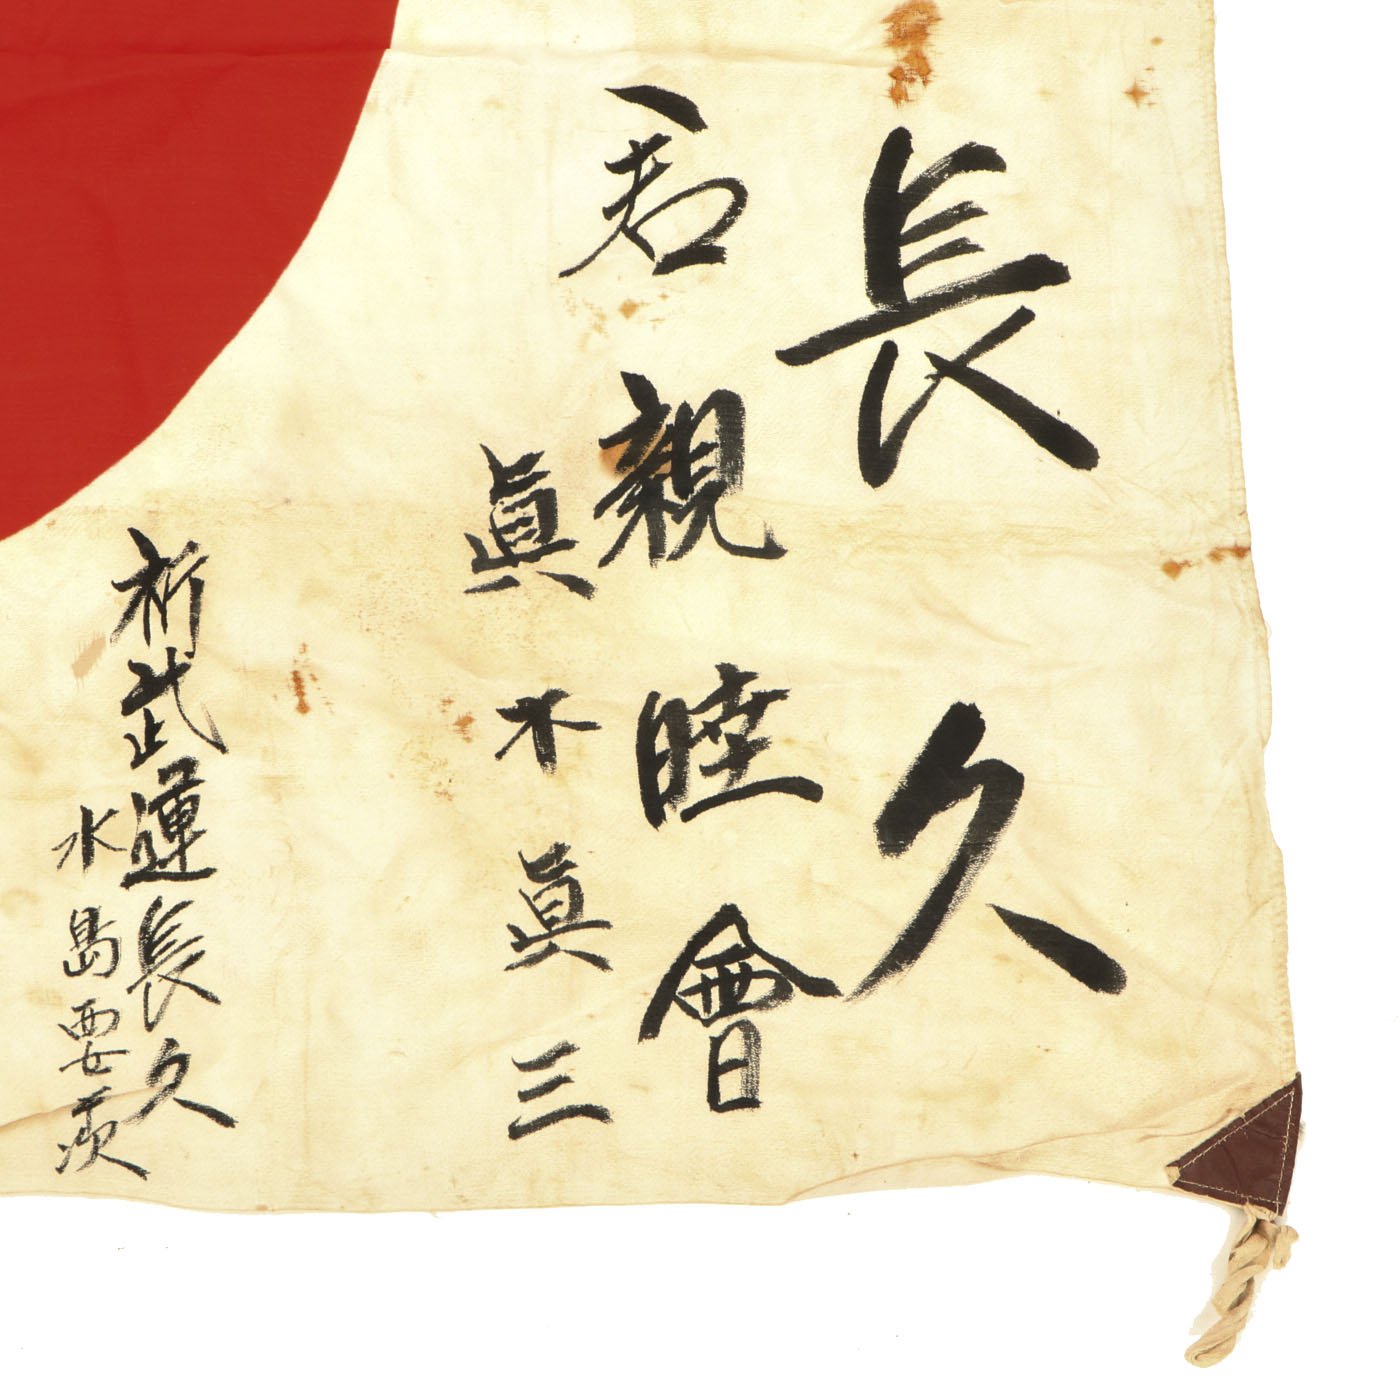 長久
君親睦會
眞木眞三
祈武運長久
水島要